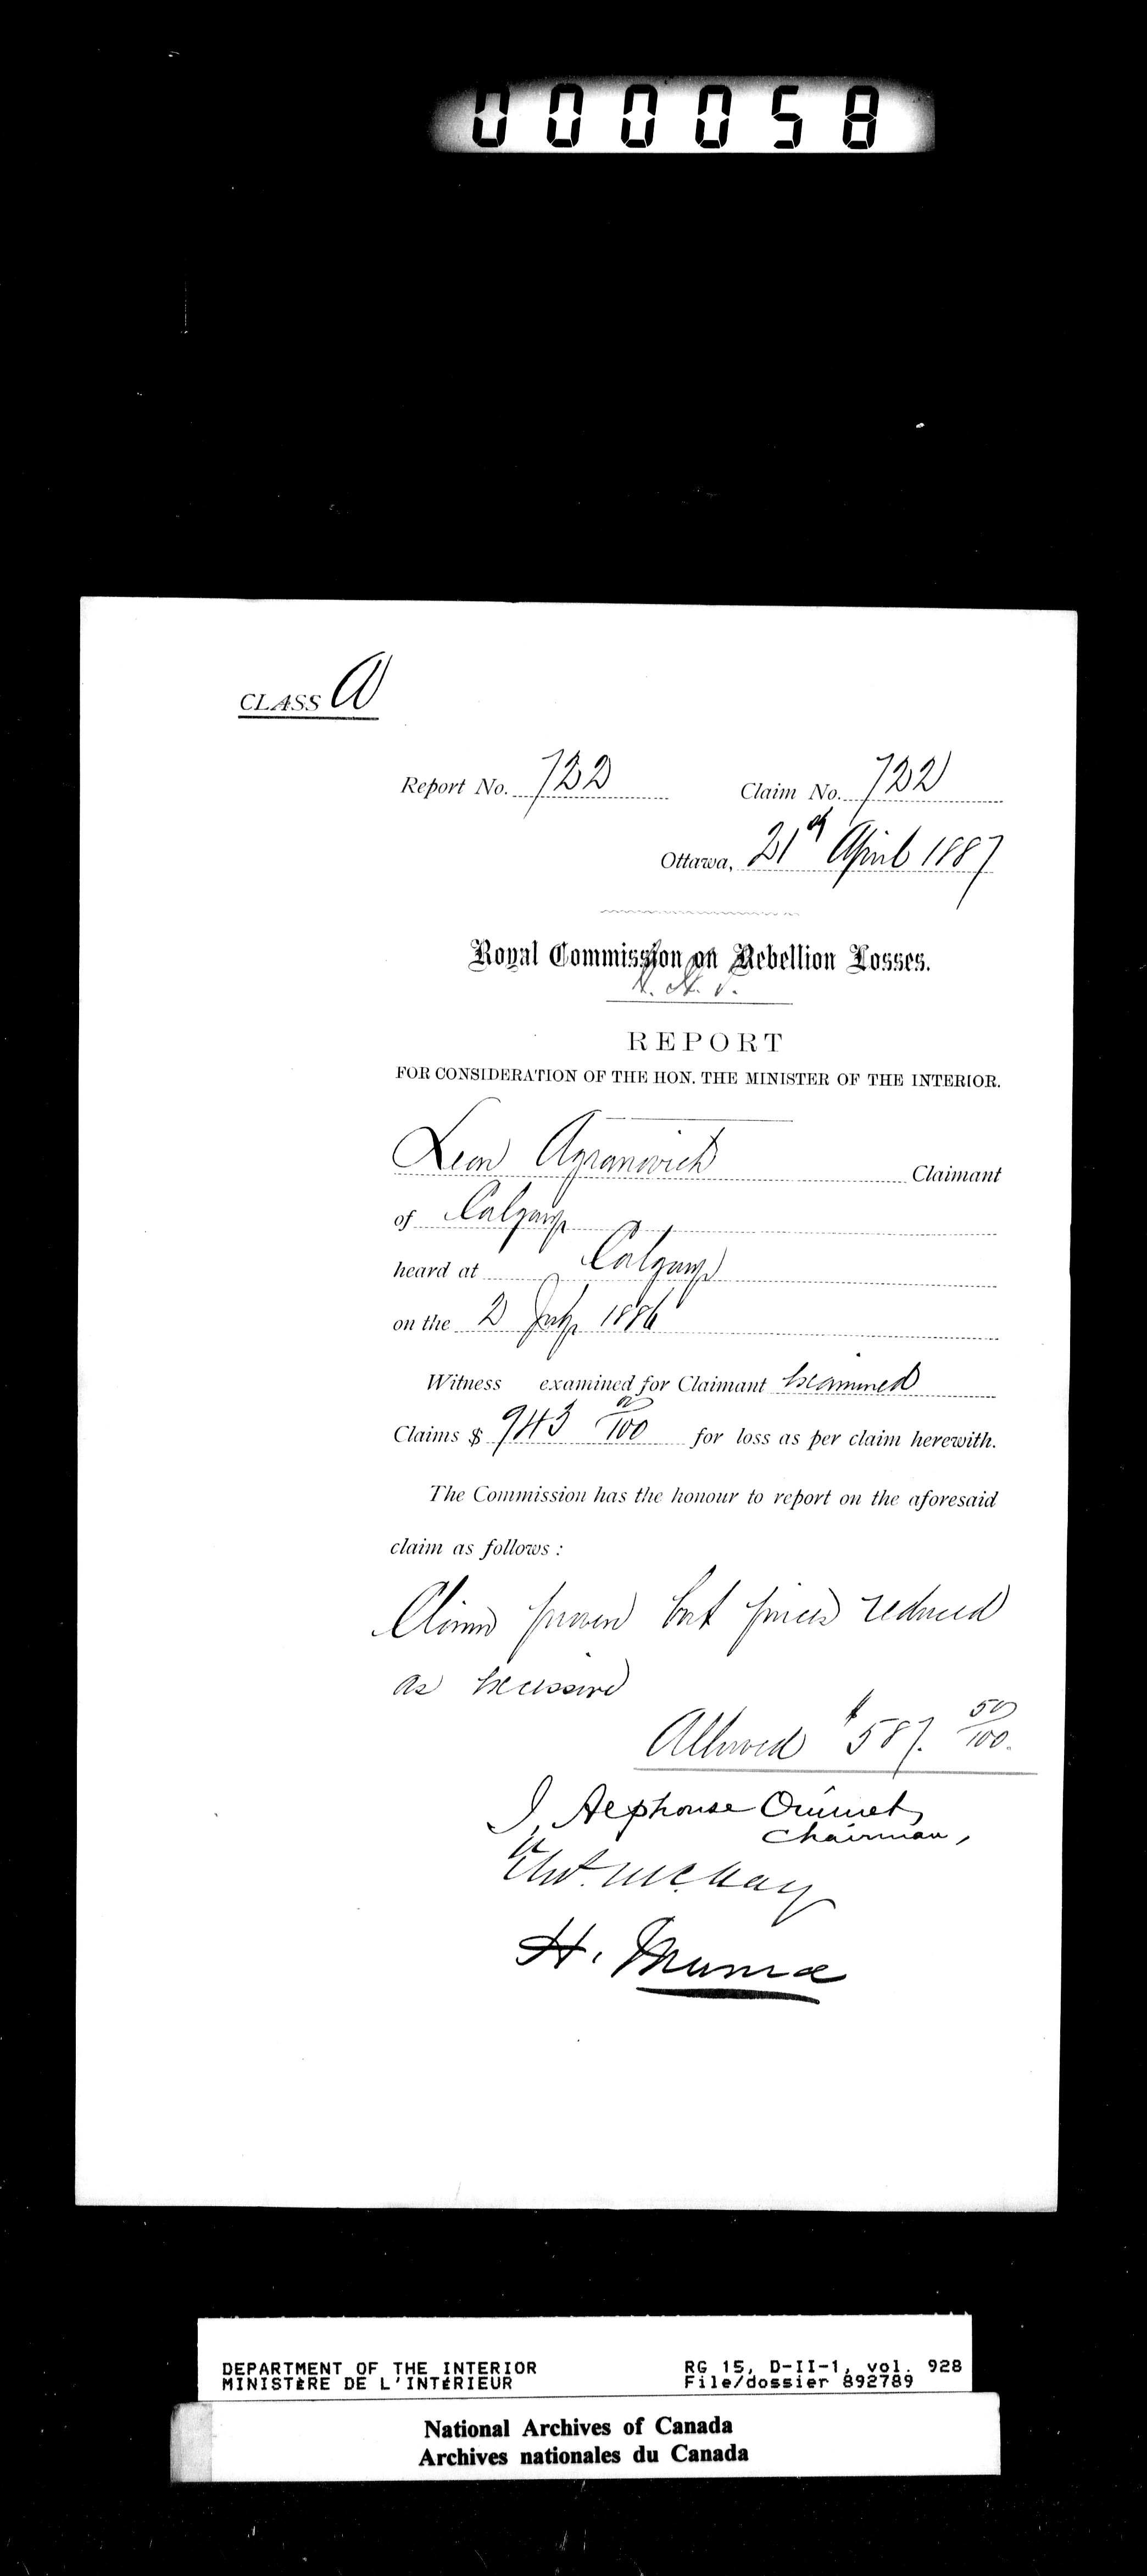 000058
CLASS A
Report No. 722 Claim No. 722
Ottawa, 21st April 1887
Royal Commission on Rebellion Losses.
REPORT
FOR CONSIDERATION OF THE HON. THE MINISTER OF THE INTERIOR.
Leon Agranovich Claimant
of Calgary
heard at Calgary
on the 2 July 1886
Witness examined for Claimant Examined
Claims $ 943 00/100 for loss as per claim herewith.
The Commission has the honour to report on the aforesaid
claim as follows :
Claim proven but prices reduced
as excessive
Allowed $587. 50/100.
J. Alphonse Ouimet,
Chairman,
H. Muma
DEPARTMENT OF THE INTERIOR RG 15, D-II-1, vol. 928
MINISTÈRE DE L'INTÉRIEUR File/dossier 892789
National Archives of Canada
Archives nationales du Canada